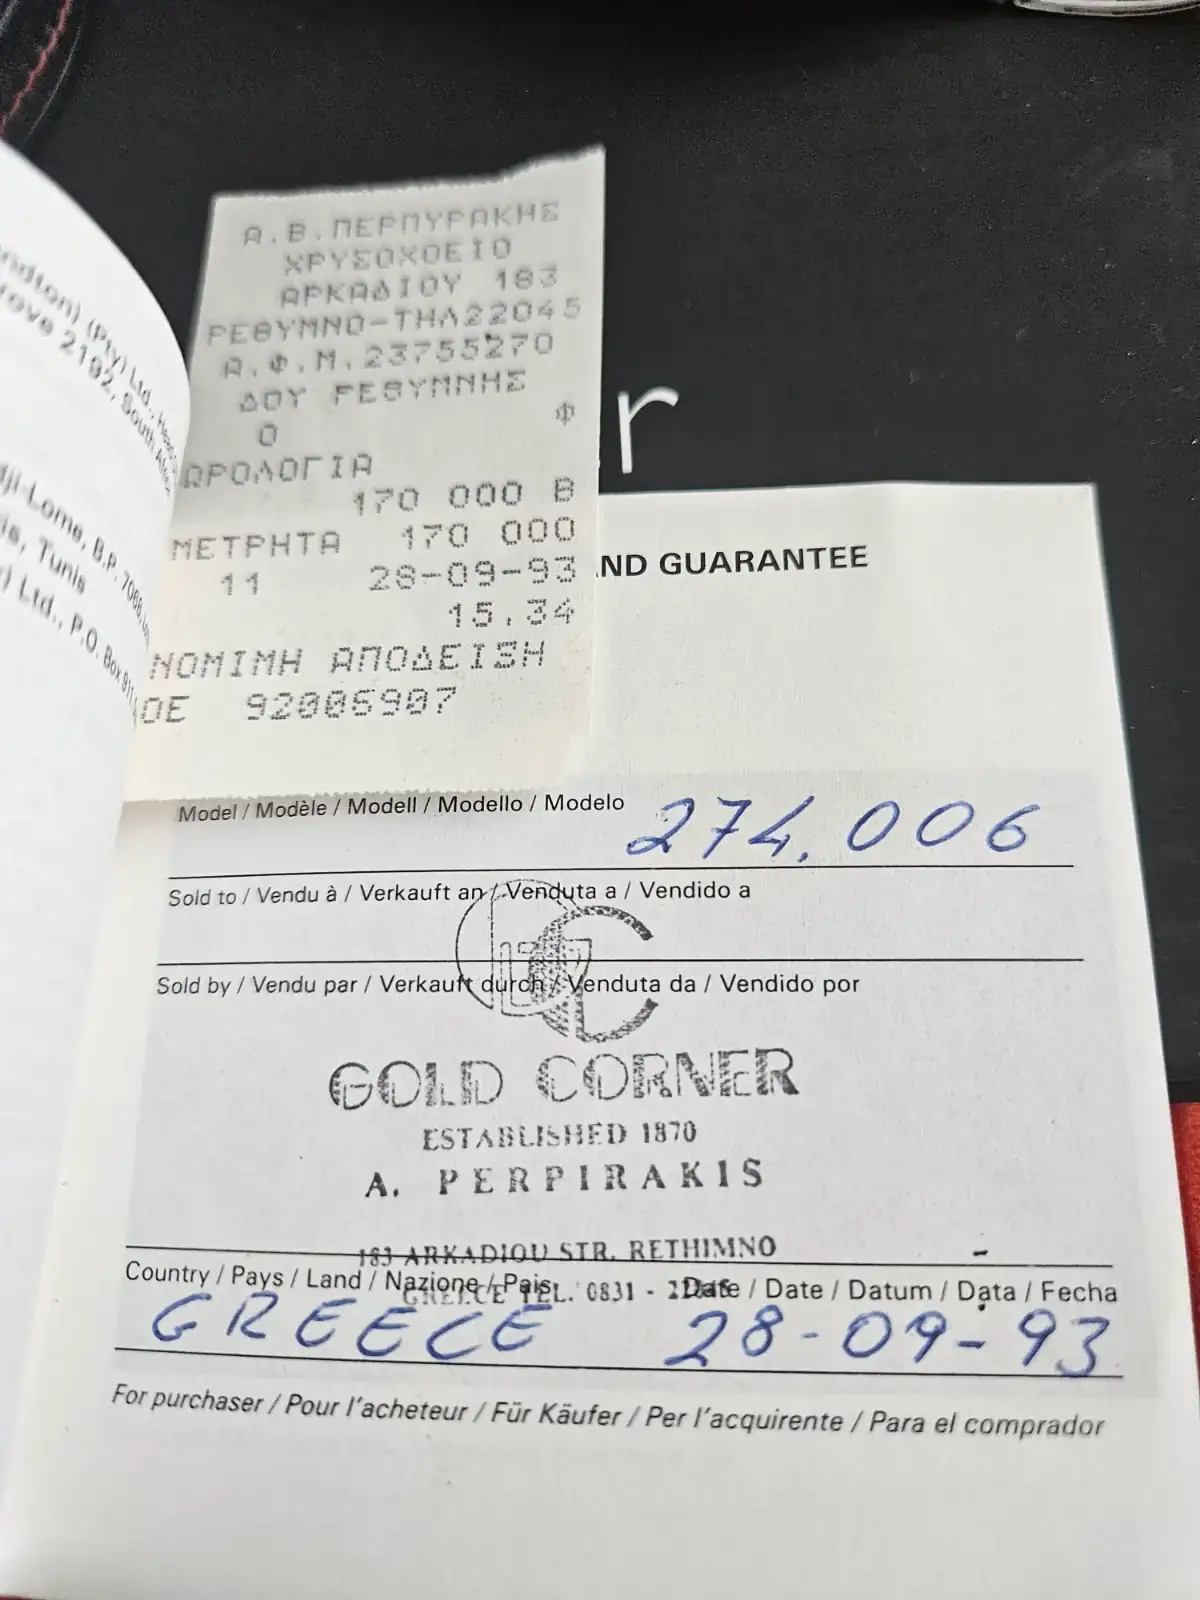 Α.Β.ΠΕΡΠΥΡΑΚΗΣ
ΧΡΥΣΟΧΟΕΙΟ
ΑΡΚΑΔΙΟΥ 183
ΡΕΘΥΜΝΟ-ΤΗΛ22045
Α.Φ.Μ.23755270
ΔΟΥ ΡΕΘΥΜΝΗΣ
Φ
0
ΩΡΟΛΟΓΙΑ
170 000 Β
ΜΕΤΡΗΤΑ 170 000
11 28-09-93
15.34
ΝΟΜΙΜΗ ΑΠΟΔΕΙΞΗ
ΟΕ 92006907
r
ND GUARANTEE
(Pty) Ltd.,
2192, South
Lome, B.P. 7088
Tunis
Ltd., P.O. Box 911
Model / Modèle / Modell / Modello / Modelo 274.006
Sold to / Vendu à / Verkauft an / Venduta a / Vendido a
Sold by / Vendu par / Verkauft durch / Venduta da / Vendido por
GOLD CORNER
ESTABLISHED 1870
A. PERPIRAKIS
183 ARKADIOU STR. RETHIMNO
GREECE TEL. 0831 -
Country / Pays / Land / Nazione / Pais Date / Date / Datum / Data / Fecha
GREECE 28-09-93
For purchaser / Pour l'acheteur / Für Käufer / Per l'acquirente / Para el comprador